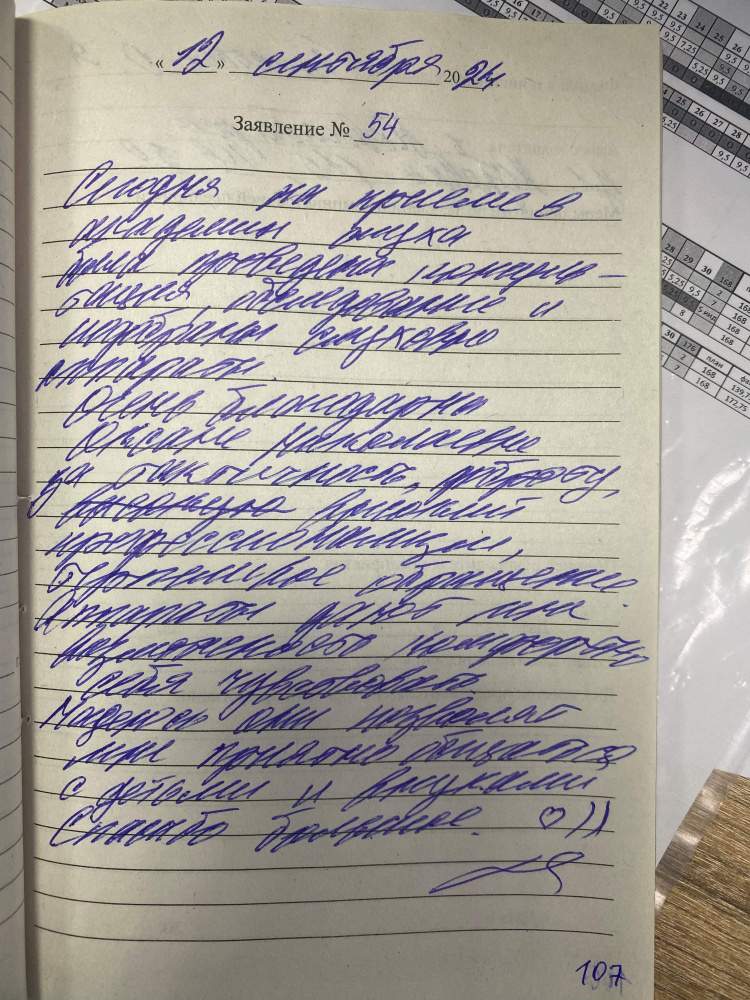 « 12 » сентября 2024
Заявление № 54
Сегодня на приеме в
академии слуха
была проведена консуль-
тация, обследование и
подобраны слуховые
аппараты.
Очень благодарны
Оксане Николаевне
за тактичность, доброту,
высокий
профессионализм,
обращение.
Аппараты дают мне
возможность комфортно
себя чувствовать
Надеюсь они позволят
мне приятно общаться
с детьми и внуками
Спасибо большое. ♡))
107